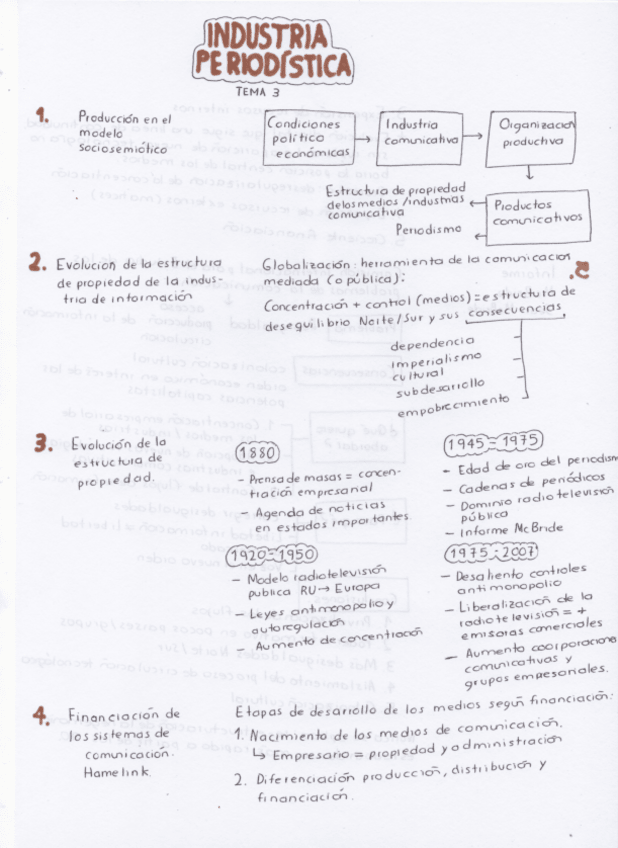 INDUSTRIA
PERIODÍSTICA
TEMA 3
1. Producción en el
modelo
sociosemiótico
Condiciones
político
económicas
Industria
comunicativa
Organización
productiva
Productos
comunicativos
Estructura de propiedad
de los medios / industrias
comunicativa
Periodismo
2. Evolución de la estructura
de propiedad de la indus-
tria de información
Globalización: herramienta de la comunicación
mediada (o pública):
Concentración + control (medios) = estructura de
desequilibrio Norte/Sur y sus consecuencias
dependencia
imperialismo
cultural
subdesarrollo
empobrecimiento
3. Evolución de la
estructura de
propiedad.
1880
- Prensa de masas = concen-
tración empresarial
- Agenda de noticias
en estados importantes.
1920-1950
- Modelo radiotelevisión
publica RU → Europa
- Leyes antimonopolio y
autoregulación
- Aumento de concentración
1945-1975
- Edad de oro del periodism
- Cadenas de periódicos
- Dominio radiotelevisión
pública
- Informe McBride
1975-2007
- Desaliento controles
antimonopolio
- Liberalización de la
radiotelevisión = +
emisoras comerciales
- Aumento coorporacione
comunicativas y
grupos empesariales.
4. Financiación de
los sistemas de
comunicación.
Hamelink.
Etapas de desarrollo de los medios según financiación:
1. Nacimiento de los medios de comunicación.
↳ Empresario = propiedad y administración
2. Diferenciación producción, distribución y
financiación.